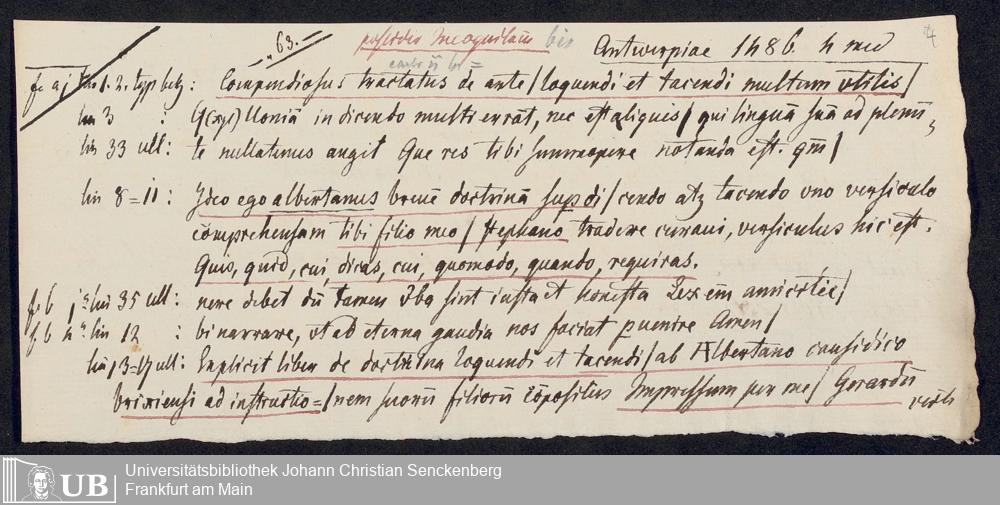 63.
Antwerpiae 1486. 4
fo a j lin 1. 2. typi : Compendiosus tractatus de arte / loquendi et tacendi multum vtilis /
lin 3 : in dicendo multi errāt, nec est aliquis / qui linguā suā ad plenū,
lin 33 ult: te nullatenus Que res tibi summopere notanda est. qm̄ /
lin 8=11: Ideo ego albertanus breuē doctrinā sup di / cendo atqꝫ tacendo vno versiculo
cōmprehensam tibi filio meo / stephano tradere curaui, versiculus hic est.
Quis, quid, cui, dicas, cur, quomodo, quando, requiras.
f. b j lin 35 ult: nere debet dū tamen sint iusta et honesta Lex em̄
f. b 4 lin 12 : bi narrare, vt ad eterna gaudia nos faciat puenire Amen /
lin 13=17 ult: Explicit liber de doctrina loquendi et tacendi / ab Albertano causidico
brixiensi ad instructio= / nem suorū filiorū cōpositus Impressum per me / Gerardū
Universitätsbibliothek Johann Christian Senckenberg
Frankfurt am Main
UB